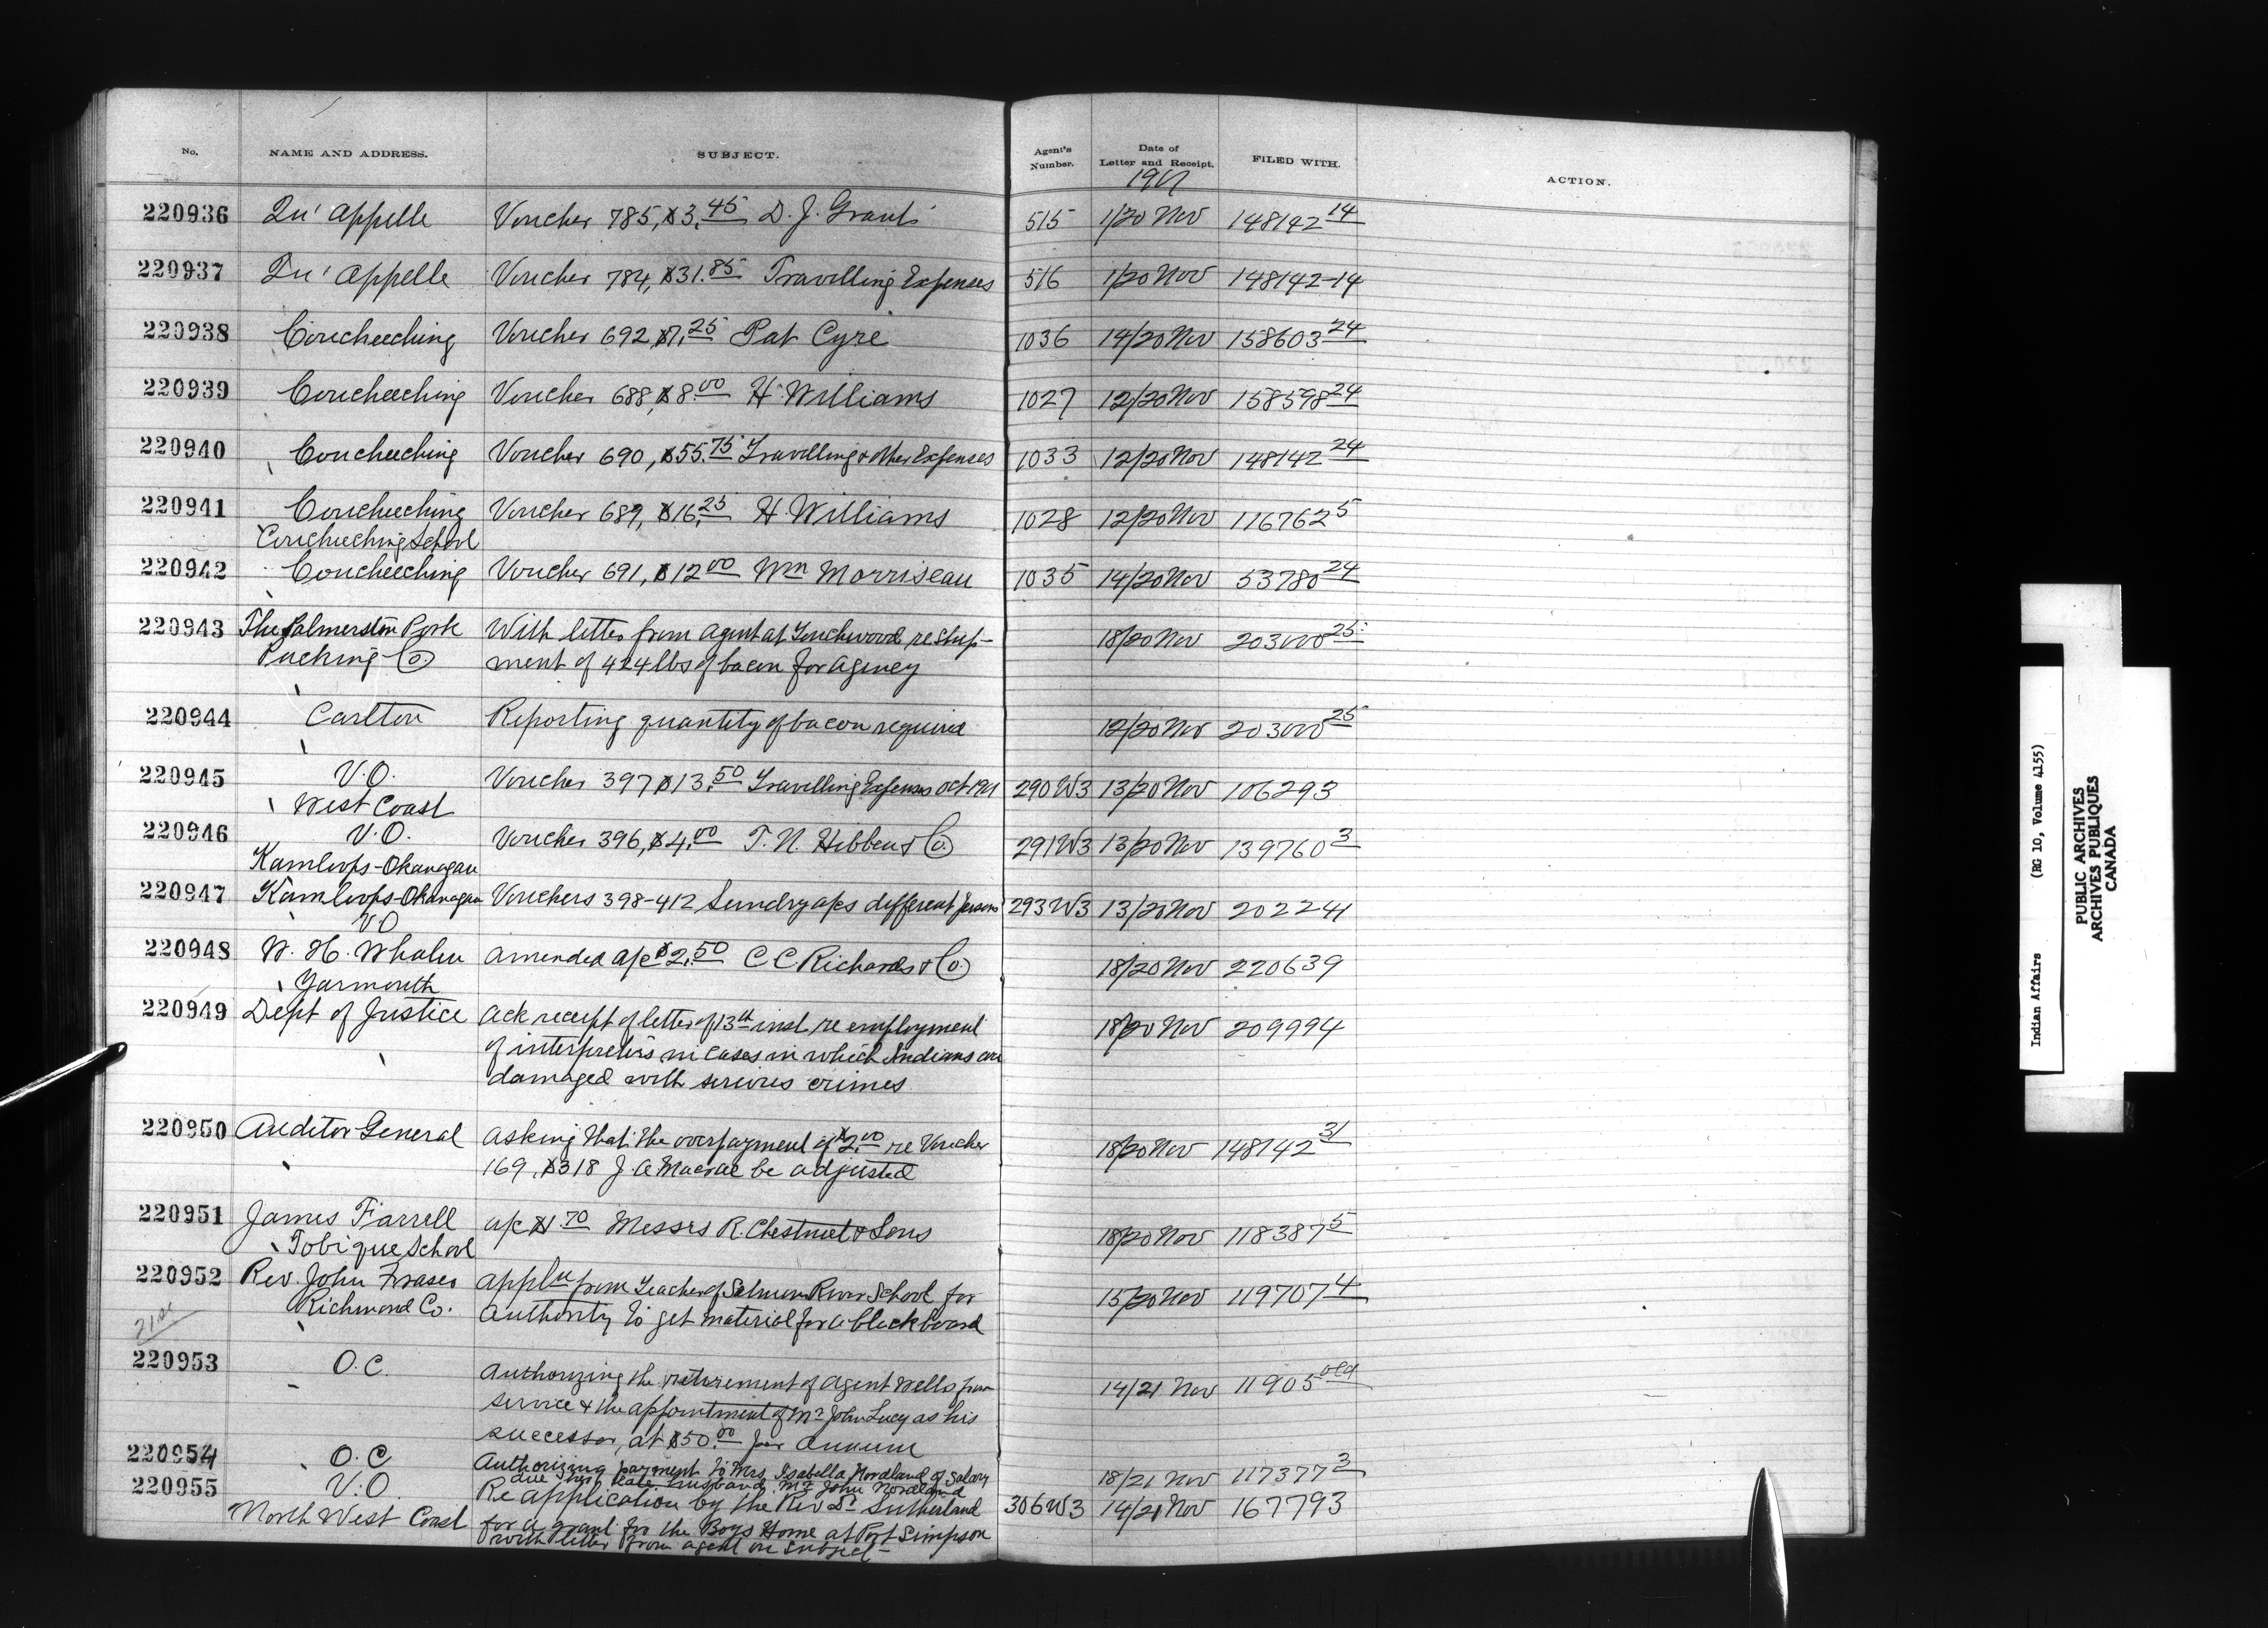 No. NAME AND ADDRESS. SUBJECT. Agent's Number. Date of Letter and Receipt. FILED WITH. ACTION.
220936 Qu'appelle Voucher 785, $3.45 D. J. Grant 515 1/20 Nov 148142 14
220937 Qu'appelle Voucher 784, $31.85 Travelling Expenses 516 1/20 Nov 148142-14
220938 Coucheeching Voucher 692, $7.25 Pat Cyre 1036 14/20 Nov 158603 24
220939 Coucheeching Voucher 688, $8.00 H. Williams 1027 12/20 Nov 158598 24
220940 Coucheeching Voucher 690, $55.75 Travelling & other Expenses 1033 12/20 Nov 148142 24
220941 Coucheeching Voucher 689, $16.25 H. Williams 1028 12/20 Nov 116762 5
Coucheeching School
220942 Coucheeching Voucher 691, $12 00 Wm Morriseau 1035 14/20 Nov 53780 24
220943 The Palmerston Pork With letter from agent at Touchwood re ship- 18/20 Nov 203000 25
Packing Co. ment of 424 lbs of bacon for agency
220944 Carlton Reporting quantity of bacon required 12/20 Nov 203000 25
220945 V.O. Voucher 397 $13.50 Travelling Expenses Oct 290W3 13/20 Nov 106293
West Coast
220946 V.O. Voucher 396, $4.00 T. N. Hibben & Co. 291W3 13/20 Nov 139760 3
Kamloops-Okanagan
220947 Kamloops-Okanagan Vouchers 398-412 Sundry a/cs different persons 293W3 13/20 Nov 202241
VO
220948 W. H. Whalen amended a/c $2.50 C C Richards & Co. 18/20 Nov 220639
Yarmouth
220949 Dept of Justice Ack receipt of letter of 13th inst. re employment 18/20 Nov 209994
of interpreters in cases in which Indians are
damaged with serious crimes
220950 Auditor General Asking that the overpayment of $2.00 re Voucher 18/20 Nov 148142 31
169, $318 J. A Macrae be adjusted
220951 James Farrell a/c $1.70 Messrs R. Chestnut & Sons 18/20 Nov 118387 5
Tobique School
220952 Rev. John Fraser appln from Teacher of Salmon River School for 15/20 Nov 119707 4
Richmond Co. Authority to get material for a blackboard
21st
220953 O.C. Authorizing the retirement of Agent Wells from 14/21 Nov 11905 old
service & the appointment of Mr John Lucy as his
successor, at $50.00 per annum
220954 O.C Authorizing payment to Mrs. Isabella Nordland of salary 18/21 Nov 117377 3
due her late husband Mr John Nordland
220955 V.O. Re application by the Rev Dr Sutherland 306W3 14/21 Nov 167793
North West Coast for a grant for the Boys Home at Port Simpson
with letter from agent on subject-
Indian Affairs (RG 10, Volume 4155)
PUBLIC ARCHIVES
ARCHIVES PUBLIQUES
CANADA